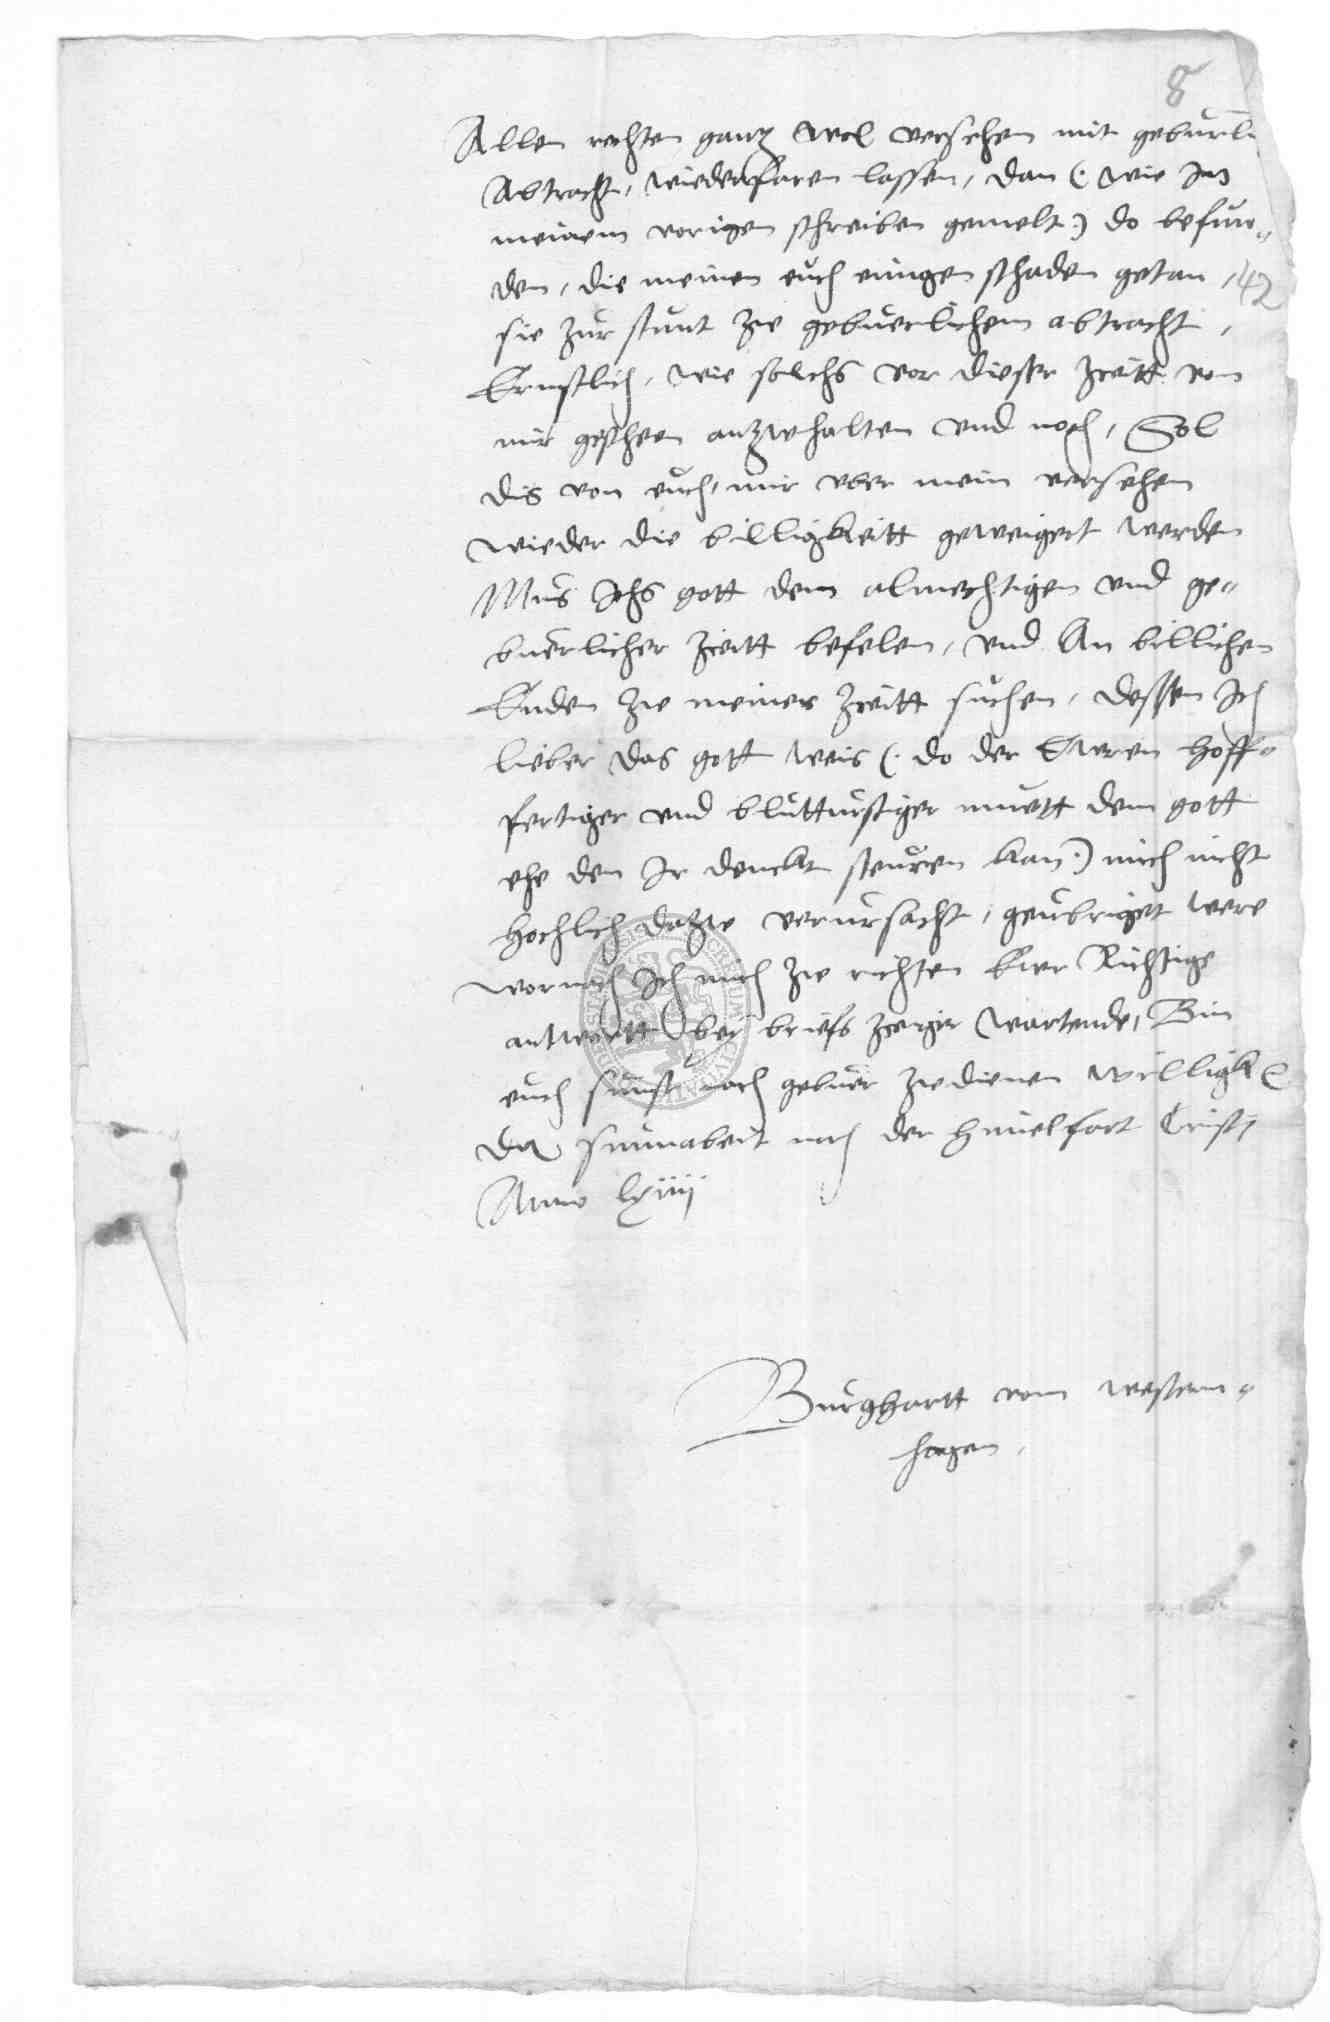 8
Allen rechten gantz wol versehen mit geburli
Abtracht, wiederfaren lassen, dan (: wie Im
meinem vorigen schreiben gemelt :) do befun„
den, die meinen euch einigen schaden getan, 42
sie zur stunt zw gebuerlichem abtracht,
Ernstlich, wie solchs vor dieser zeitt von
mir geschen anzwhalten vnd noch, Sol
dis von euch, mir vber mein versehen
wieder die billigkeitt geweigert werden
Mus Ichs gott dem almechtigen vnd ge„
buerlicher zeitt befelen, vnd An billichen
Enden zw meiner zeitt suchen, dessen Ich
lieber das gott weis (: do der Ewren hoff„
fertiger vnd blutturstiger muett dem gott
ehe den Ir denckt steuren kan :) mich nicht
hochlich dazw verursacht, geubriget were
wornach Ich mich zw richten Ewr Richtige
antwortt bey briefs zceiger wartende, Bin
euch sunst nach gebuer zwdienen willigk
Da sunnabent nach der himelfart Cristi
Anno lxiiij
Burghartt vom western„
hagen